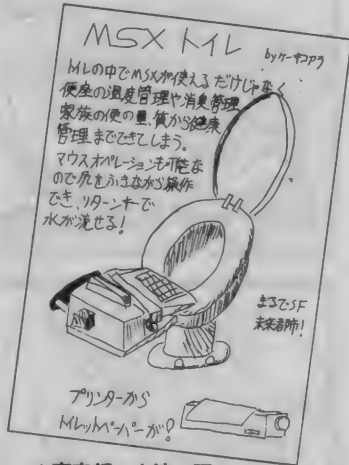 MSX トイレ
byケーキコアラ
トイレの中でMSXが使えるだけじゃなく
便座の温度管理や消臭管理
家族の便の量、質から健康
管理までできてしまう。
マウスオペレーションも可能な
ので尻をふきながら操作
でき、リターンキーで
水が流せる!
まるでSF
未来都市!
プリンターから
トイレットペーパーが!